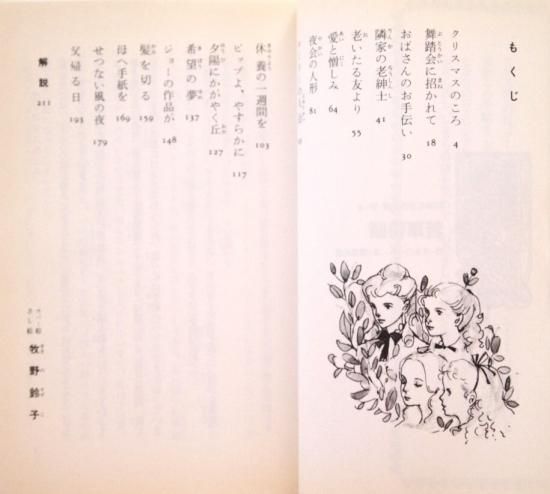 もくじ
クリスマスのころ 4
舞踏会に招かれて 18
おばさんのお手伝い 30
隣家の老紳士 41
老いたる友より 55
愛と憎しみ 64
夜会の人形 81
休養の一週間を 103
ピップよ、やすらかに 117
夕陽にかがやく丘 127
希望の夢 137
ジョーの作品が 148
髪を切る 159
母へ手紙を 169
せつない風の夜 179
父帰る日 193
解説 211
カバー絵
さし絵
牧野鈴子